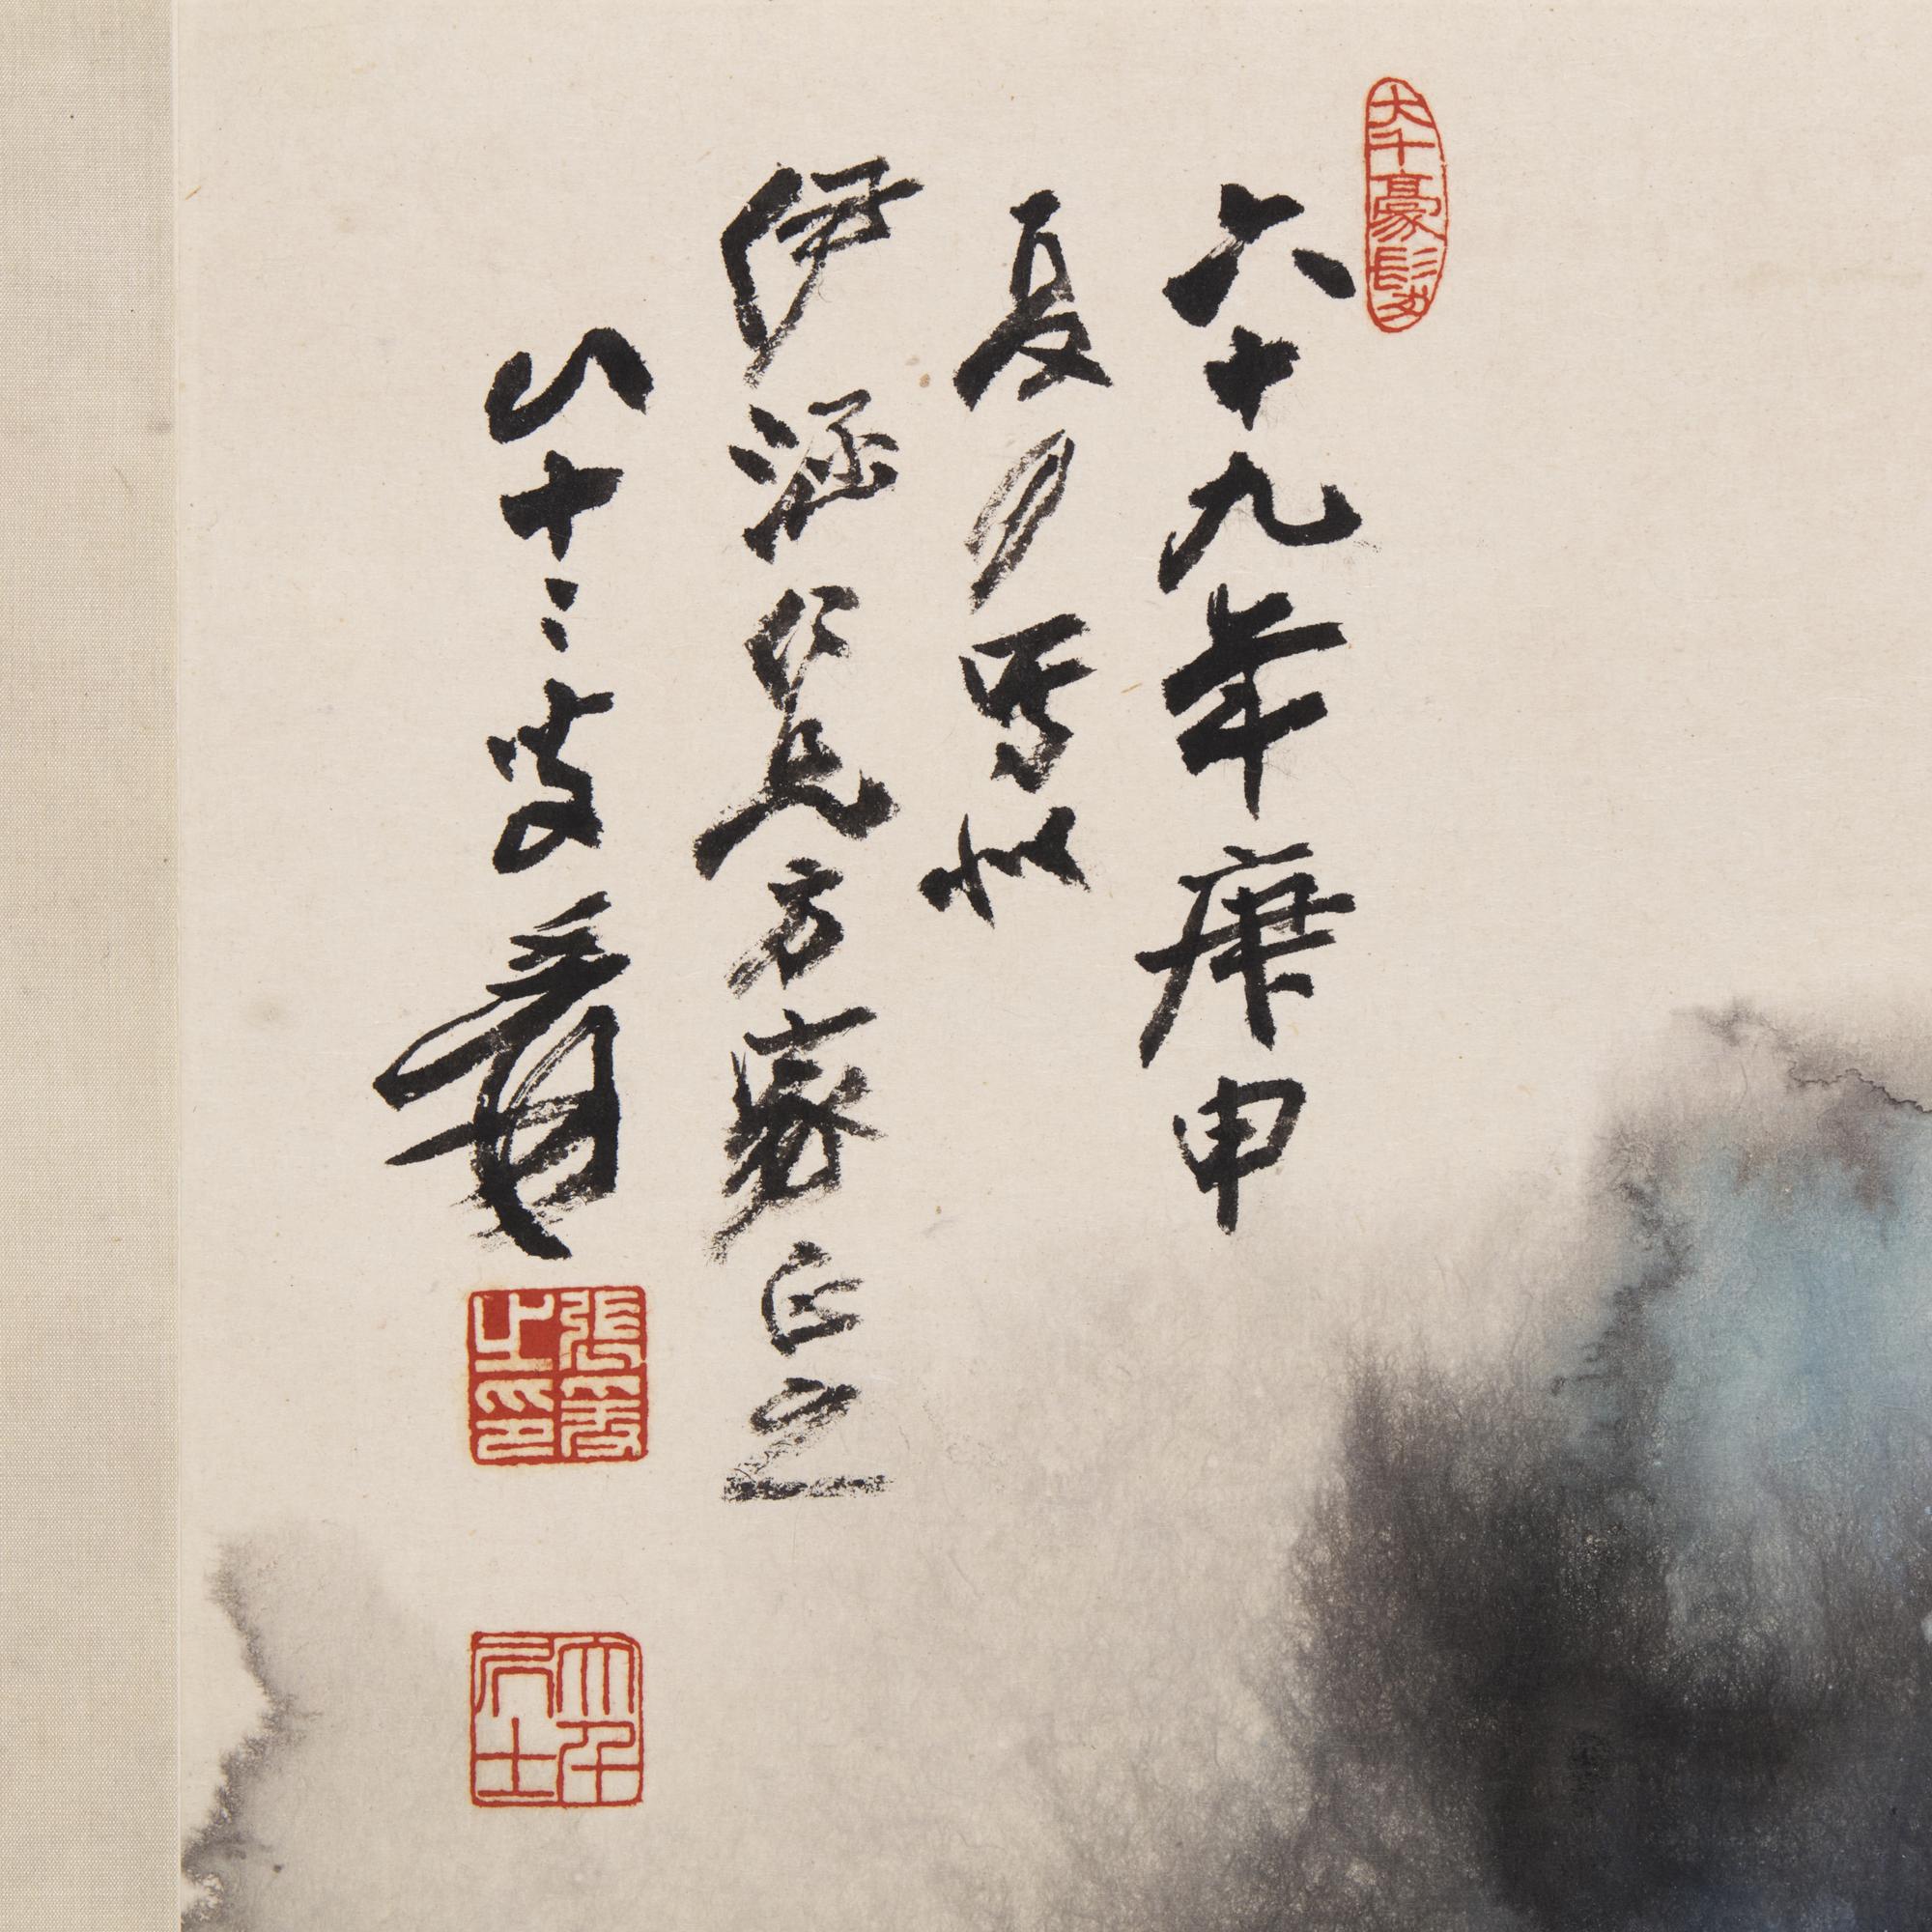 大千豪髮
六十九年庚申
夏月寫似
伊涵仁兄方家正之
八十二叟爰
張爰之印
大千居士